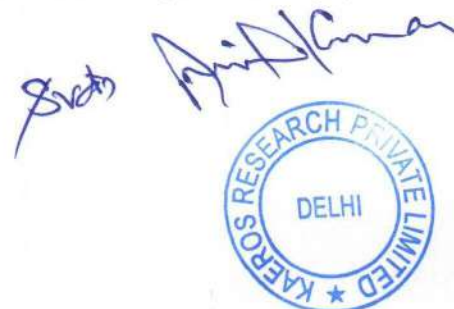 Kumar
KAEROS RESEARCH PRIVATE LIMITED ★
DELHI